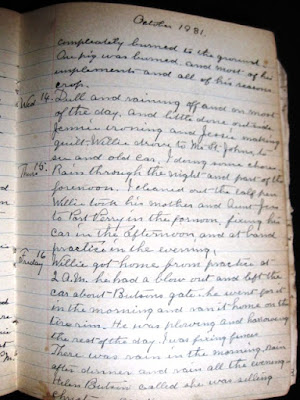 October 1931.
completely burned to the ground
One pig was burned and most of his
implements and all of his seasons
crop.
Wed 14. Dull and raining off and on most
of the day, and little done outside
Jennie ironing and Jessie making
quilt. Willie drove to Mr St. Johns to
see and old car. I doing some chores
Thurs 15. Rain through the night and part of the
forenoon. I cleaned out the calf pen
Willie took his mother and Aunt Jess
to Port Perry in the fornoon, fixing his
car in the afternoon and at band
practice in the evening.
Friday 16 Willie got home from practice at
2 A.M. he had a blow out and left the
car about Butsons gate. he went for it
in the morning and ran it home on the
tire rim. He was plowing and harrowing
the rest of the day. I was fixing fences
There was rain in the morning, Rain
after dinner and rain all the evening.
Helen Butson called she was selling